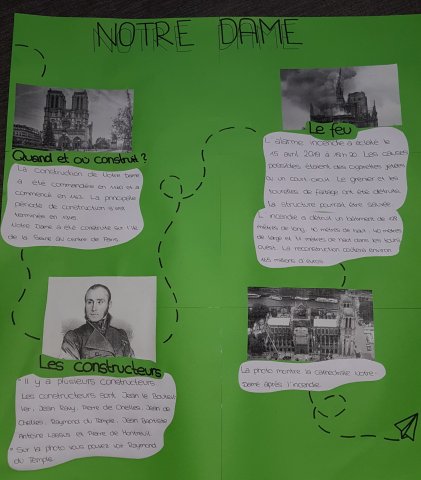 NOTRE DAME
Quand et où construit?
La construction de Notre Dame
a été commandée en 1160 et a
commencé en 1163. La principale
période de construction s'est
terminée en 1345.
Notre Dame a été construite sur l'île
de la Seine au centre de Paris
Les constructeurs
Il y a plusieurs constructeurs
Les constructeurs sont Jean le
Jean Ravy, Pierre de Chelles, Jean de
Chelles, Raymond du Temple, Jean Baptiste
Antoine Lassus et Pierre de Montreuil
Sur la photo vous pouvez voir Raymond
du Temple.
Le feu
L'alarme incendie a éclaté le
15 avril 2019 à 18h20. Les causes
possibles étaient des cigarettes jetées
ou un court circuit. Le grenier et les
tourelles de faîtage ont été détruits.
La structure pourrait être sauvée.
L'incendie a détruit un bâtiment de 108
mètres de long,
mètres de large et
ouest. La reconstruction coûtera environ
millions d'euros.
La photo montre la cathédrale Notre-
Dame après l'incendie.